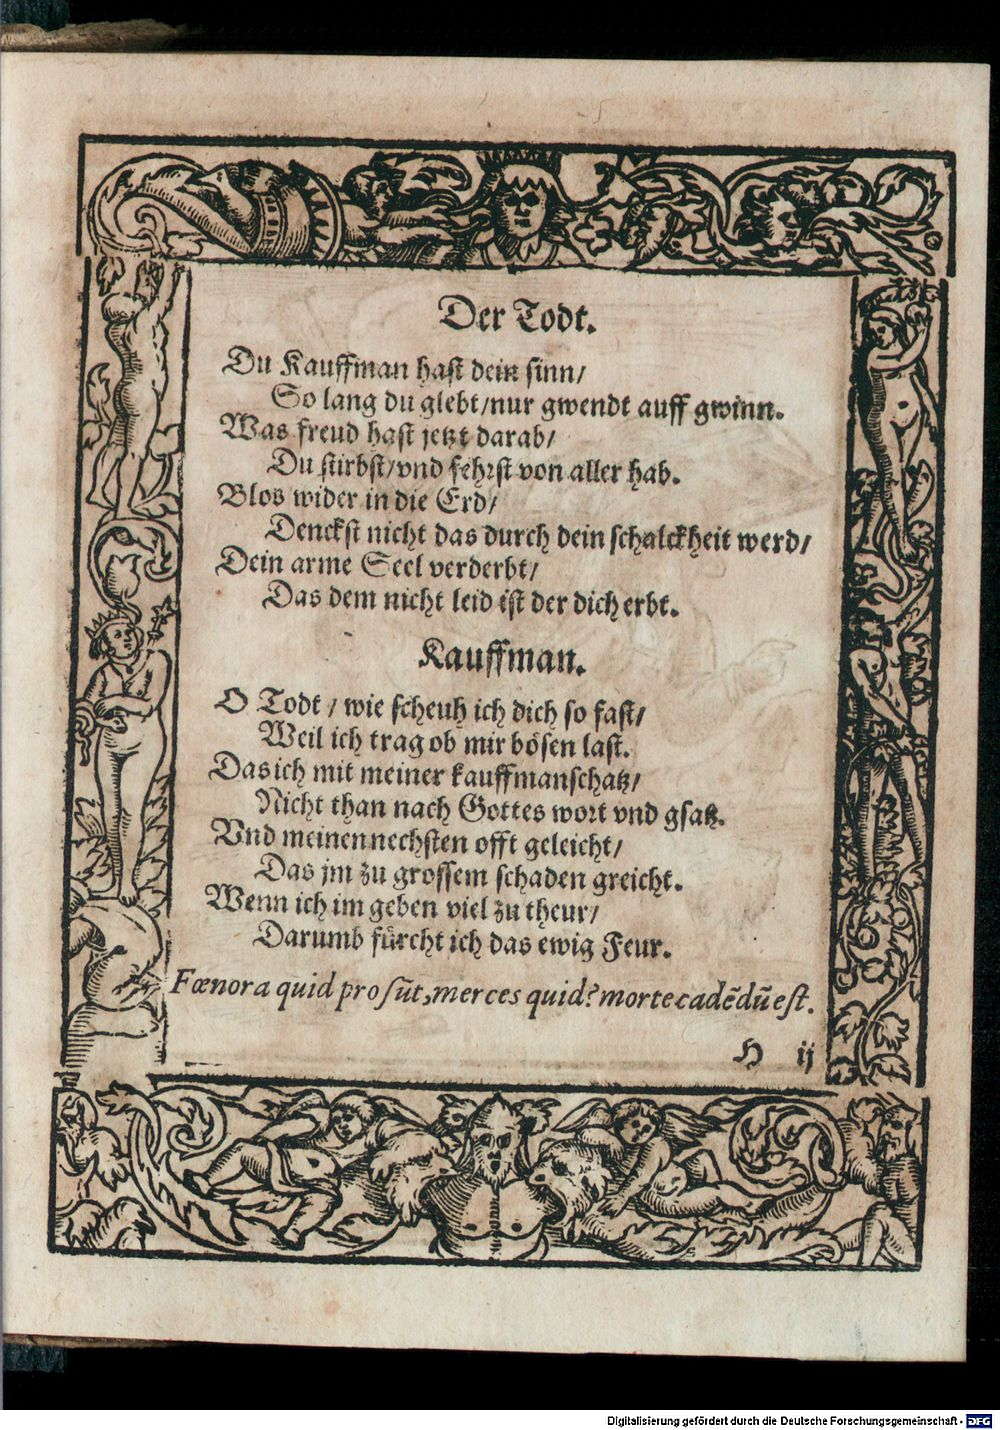 Der Todt.
Du Kauffman hast dein sinn/
So lang du glebt/nur gwendt auff gwinn.
Was freud hast jetzt darab/
Du stirbst/vnd fehrst von aller hab.
Blos wider in die Erd/
Denckst nicht das durch dein schalckheit werd/
Dein arme Seel verderbt/
Das dem nicht leid ist der dich erbt.
Kauffman.
O Todt / wie scheuh ich dich so fast/
Weil ich trag ob mir bösen last.
Das ich mit meiner kauffmanschatz/
Nicht than nach Gottes wort vnd gsatz.
Vnd meinen nechsten offt geleicht/
Das jm zu grossem schaden greicht.
Wenn ich im geben viel zu theur/
Darumb fürcht ich das ewig Feur.
Fœnora quid prosũt, merces quid? morte cadẽdũ est.
H ij
Digitalisierung gefördert durch die Deutsche Forschungsgemeinschaft - DFG